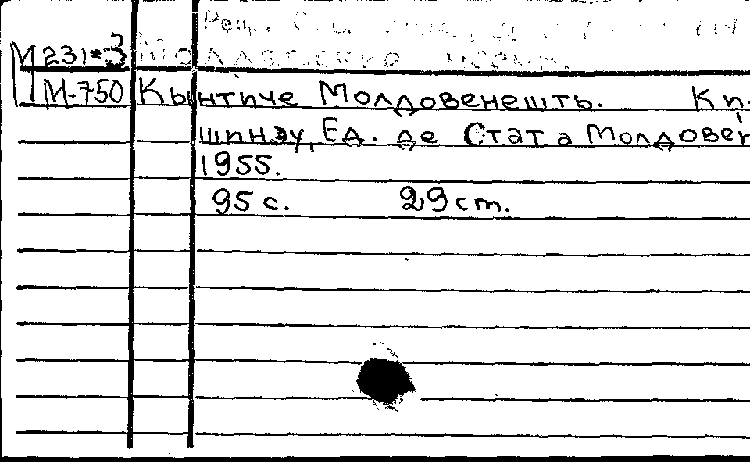 М231*3
М-750 Кынтиче Молдовенешть. Ки
шинэу, Ед. де Стат а Молдовен
1955.
95 с. 29 cm.